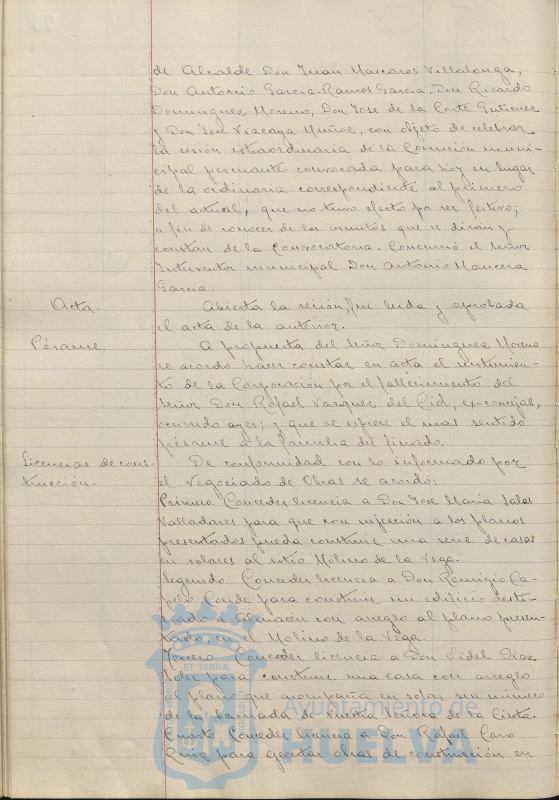 de Alcalde Don Juan Mascaros Villalonga,
Don Antonio Garcia-Ramos Garcia, Don Ricardo
Dominguez Moreno, Don Jose de la Corte Gutierrez
y Don José Vizcaya Muñoz, con objeto de celebrar
la sesión extraordinaria de la Comisión muni-
cipal permanente convocada para hoy en lugar
de la ordinaria correspondiente al primero
del actual, que no tuvo efecto por ser festivo;
a fin de conocer de los asuntos que se dirán y
constan de la convocatoria. Concurrió el Señor
Interventor municipal Don Antonio Mancera
Garcia.
Acta.
Abierta la sesión, fue leida y aprobada
el acta de la anterior.
Pésame.
A propuesta del Señor Dominguez Moreno
se acordó hacer constar en acta el sentimien-
to de la Corporación por el fallecimiento del
Señor Don Rafael Vazquez del Cid, ex-concejal,
ocurrido ayer; y que se exprese el mas sentido
pésame a la familia del finado.
Licencias de cons-
trucción.
De conformidad con lo informado por
el Negociado de Obras se acordó:
Primero. Conceder licencia a Don José Maria Salas
Valladares para que con sujeción a los planos
presentados pueda construir una serie de casas
en solares al sitio Molino de la Vega.
Segundo. Conceder licencia a Don Remigio Ca-
pelo Conde para construir un edificio desti-
nado a almacen con arreglo al plano presen-
tado, en el Molino de la Vega.
Tercero. Conceder licencia a Don Fidel Diaz
Soler para construir una casa con arreglo
al plano que acompaña en solar sin numero
de la barriada de Nuestra Señora de la Cinta.
Cuarto. Conceder licencia a Don Rafael Caro
para ejecutar obras de construcción en
ET TERRAE
Ayuntamiento de
HUELVA